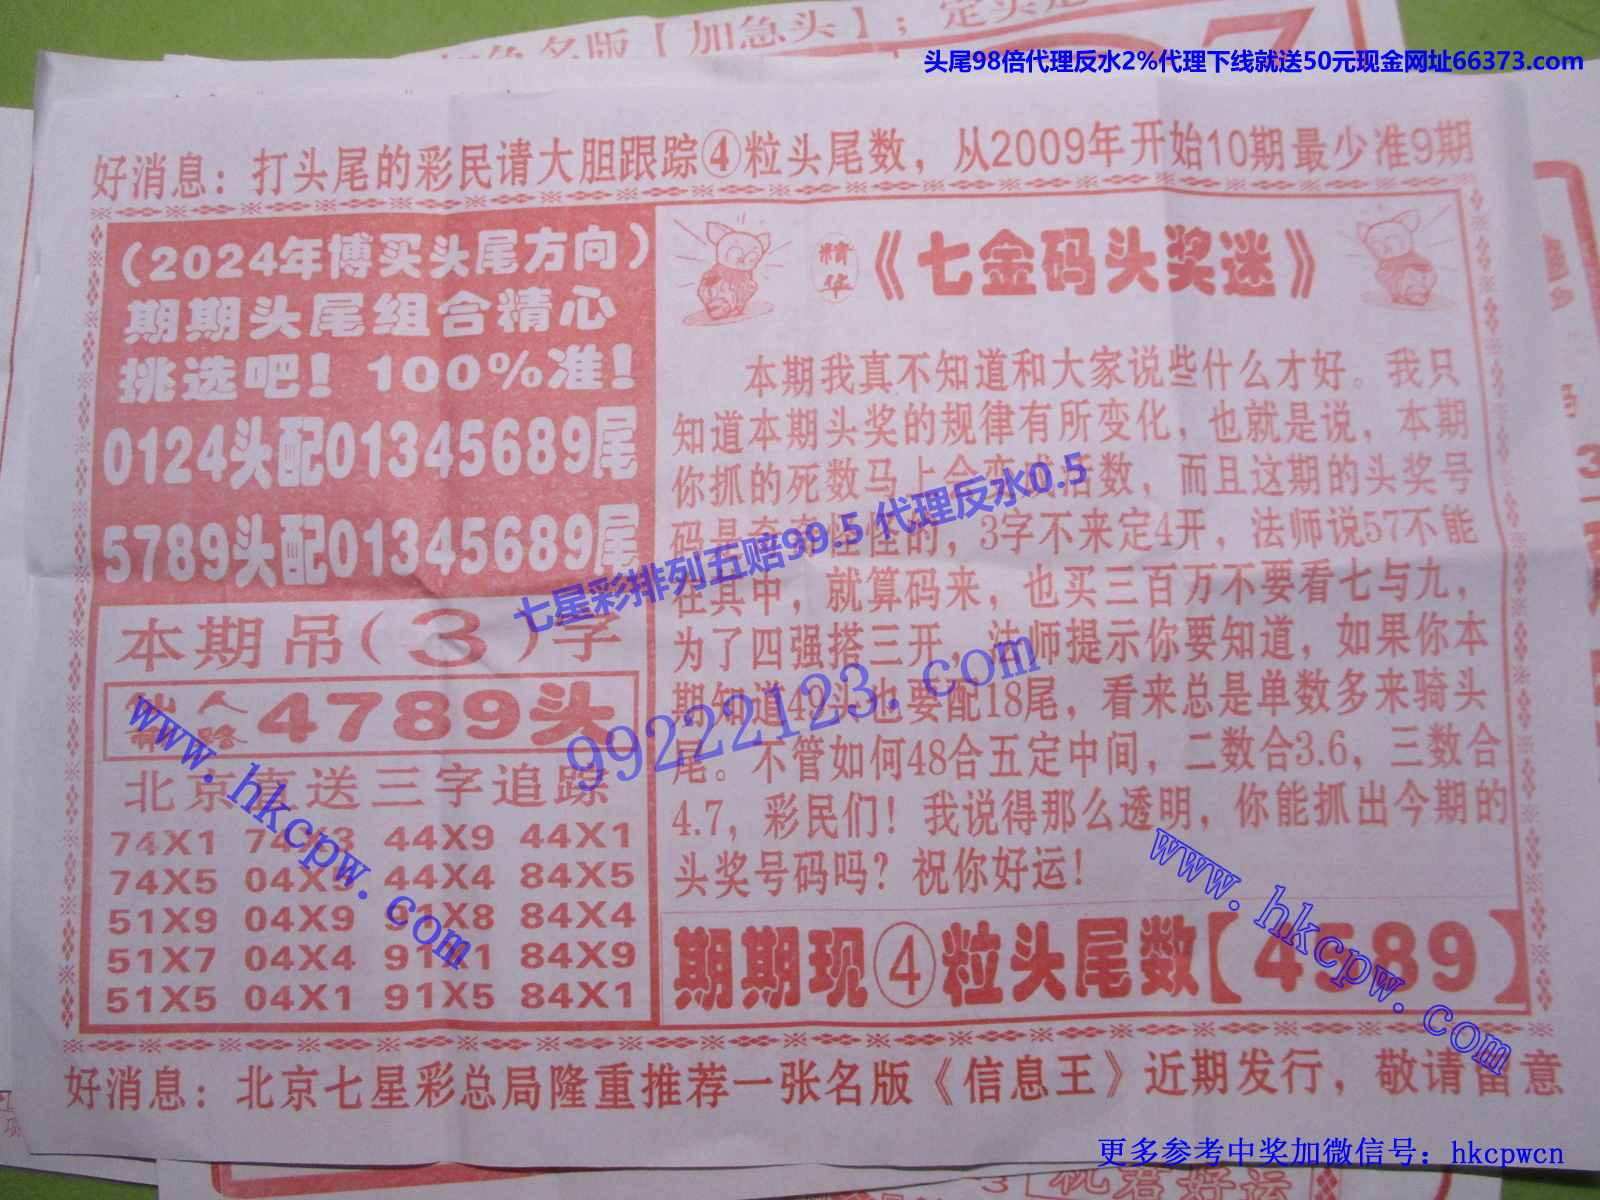 加急头】；定头尾
头尾98倍代理反水2%代理下线就送50元现金网址66373.com
好消息：打头尾的彩民请大胆跟踪④粒头尾数，从2009年开始10期最少准9期
（2024年博买头尾方向）
期期头尾组合精心
挑选吧！100%准！
0124头配01345689尾
5789头配01345689尾
本期吊（3）字
仙人 4789头
北京直送三字追踪
74X1 74X3 44X9 44X1
74X5 04X5 44X4 84X5
51X9 04X9 91X8 84X4
51X7 04X4 91X1 84X9
51X5 04X1 91X5 84X1
精华《七金码头奖迷》
本期我真不知道和大家说些什么才好。我只
知道本期头奖的规律有所变化，也就是说，本期
你抓的死数马上会变成活数，而且这期的头奖号
码是奇奇怪怪的，3字不来定4开，法师说57不能
在其中，就算码来，也买三百万不要看七与九，
为了四强搭三开，法师提示你要知道，如果你本
期知道49头也要配18尾，看来总是单数多来骑头
尾。不管如何48合五定中间，二数合3.6，三数合
4.7，彩民们！我说得那么透明，你能抓出今期的
头奖号码吗？祝你好运！
期期现④粒头尾数【4589】
七星彩排列五赔99.5 代理反水0.5
99222123.com
www.hkcpw.com
www.hkcpw.com
好消息：北京七星彩总局隆重推荐一张名版《信息王》近期发行，敬请留意
更多参考中奖加微信号：hkcpwcn
祝君好运